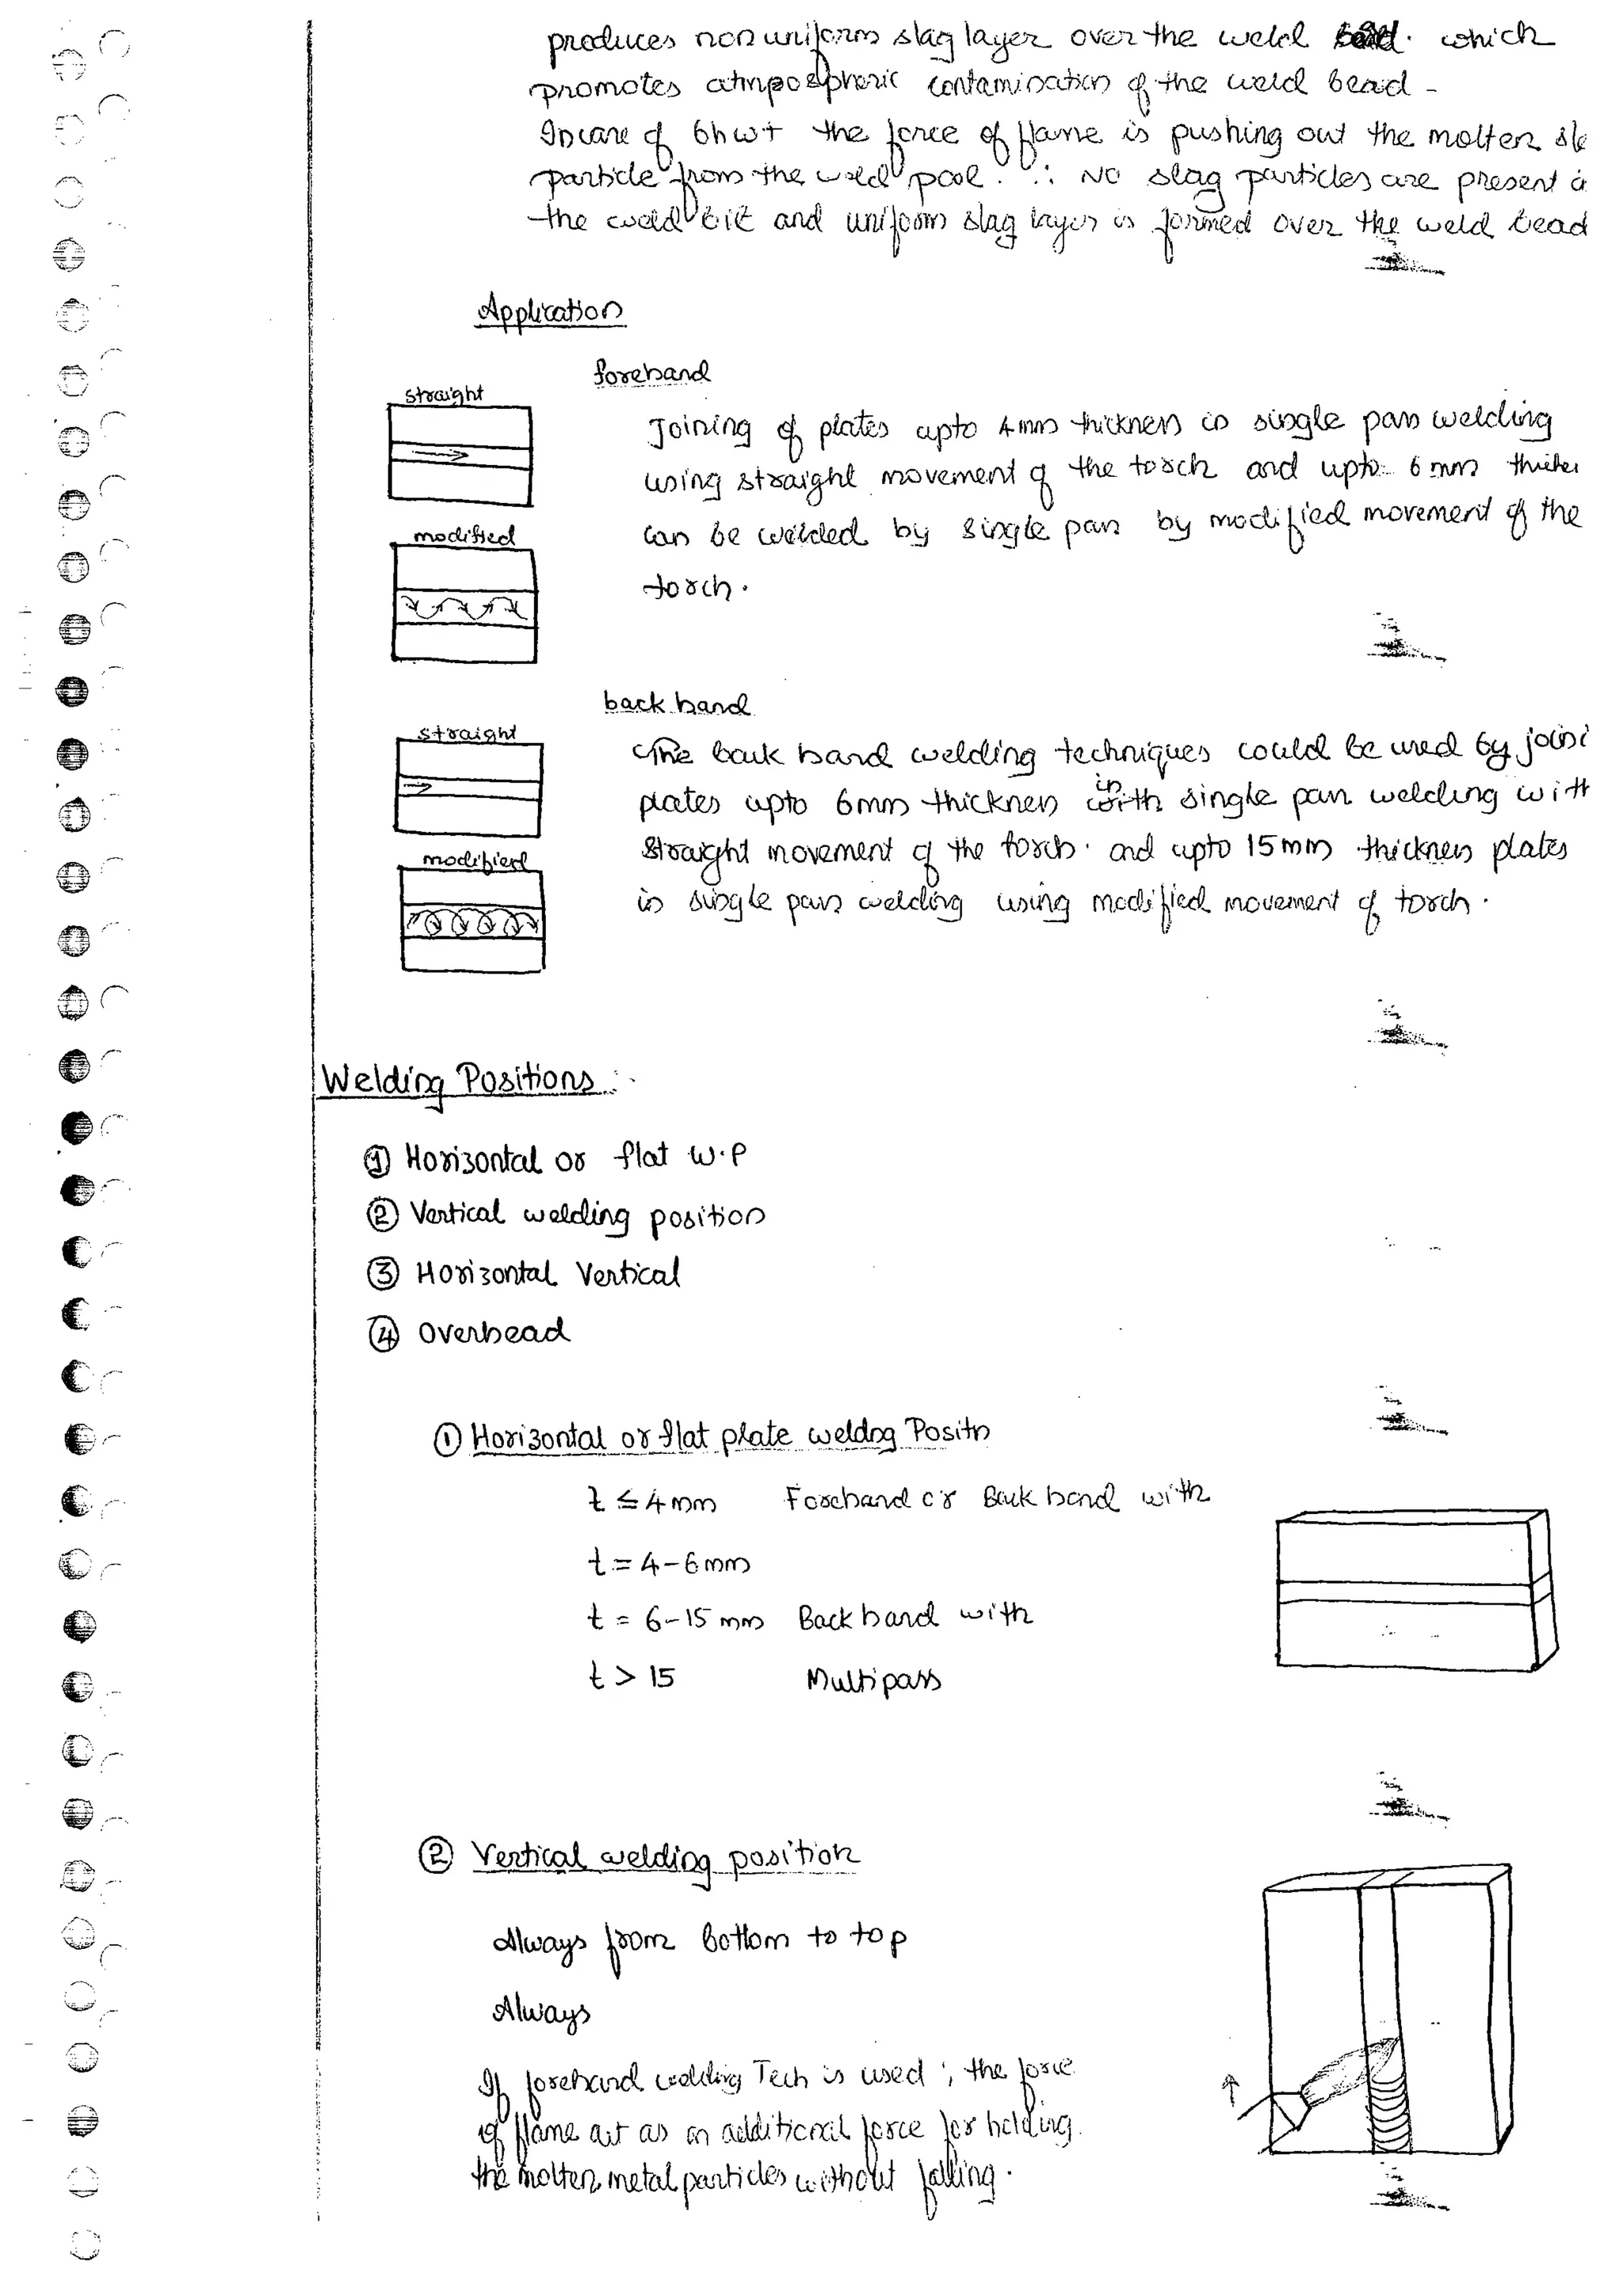 produces non uniform slag layer over the weld bead. which
promotes atmpospheric contamination of the weld bead -
In case of bhwt the force of flame is pushing out the molten
particle from the weld pool. ∴ No slag particles are present
the weld and uniform slag layer is formed over the weld bead
Application
forehand
straight
Joining of plates upto 4mm thickness in single pass welding
using straight movement of the torch and upto 6mm
modified
can be welded by single pass by modified movement of the
torch.
back hand
straight
The back hand welding techniques could be used by
plates upto 6mm thickness in single pass welding with
modified
straight movement of the torch. and upto 15mm thickness plates
in single pass welding using modified movement of torch.
Welding Positions :
① Horizontal or flat W.P
② Vertical welding position
③ Horizontal Vertical
④ Overhead
① Horizontal or flat plate weldng Positn
t ≤ 4mm Forehand or Back hand with
t = 4-6mm
t = 6-15mm Back hand with
t > 15 Multipass
② Vertical welding position
Always from bottom to top
Always
If forehand welding Tech is used ; the force
of flame act as an additional force for holding
the molten metal particles without falling.